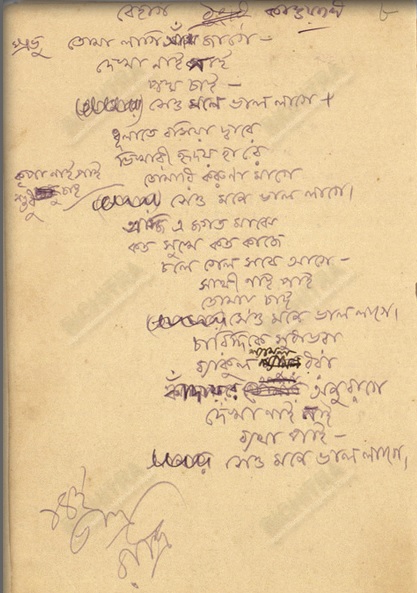 বেহাগ কাওয়ালী ৮
প্রভু তোমা লাগি আঁখি জাগে —
দেখা নাই পাই
পথ চাই —
সেও মনে ভাল লাগে।
ধূলাতে বসিয়া দ্বারে
ভিখারী হৃদয় হা রে
তোমারি করুণা মাগে
কৃপা নাই পাই
শুধু চাই
সেও মনে ভাল লাগে।
আজি এ জগত মাঝে
কত সুখে কত কাজে
চলে গেল সবে আগে —
সাথী নাই পাই
তোমা চাই
সেও মনে ভাল লাগে।
চারিদিকে সুধাভরা
ব্যাকুল শ্যামল ধরা
কাঁদায় রে অনুরাগে
দেখা নাই নাই
ব্যথা পাই —
সেও মনে ভাল লাগে।